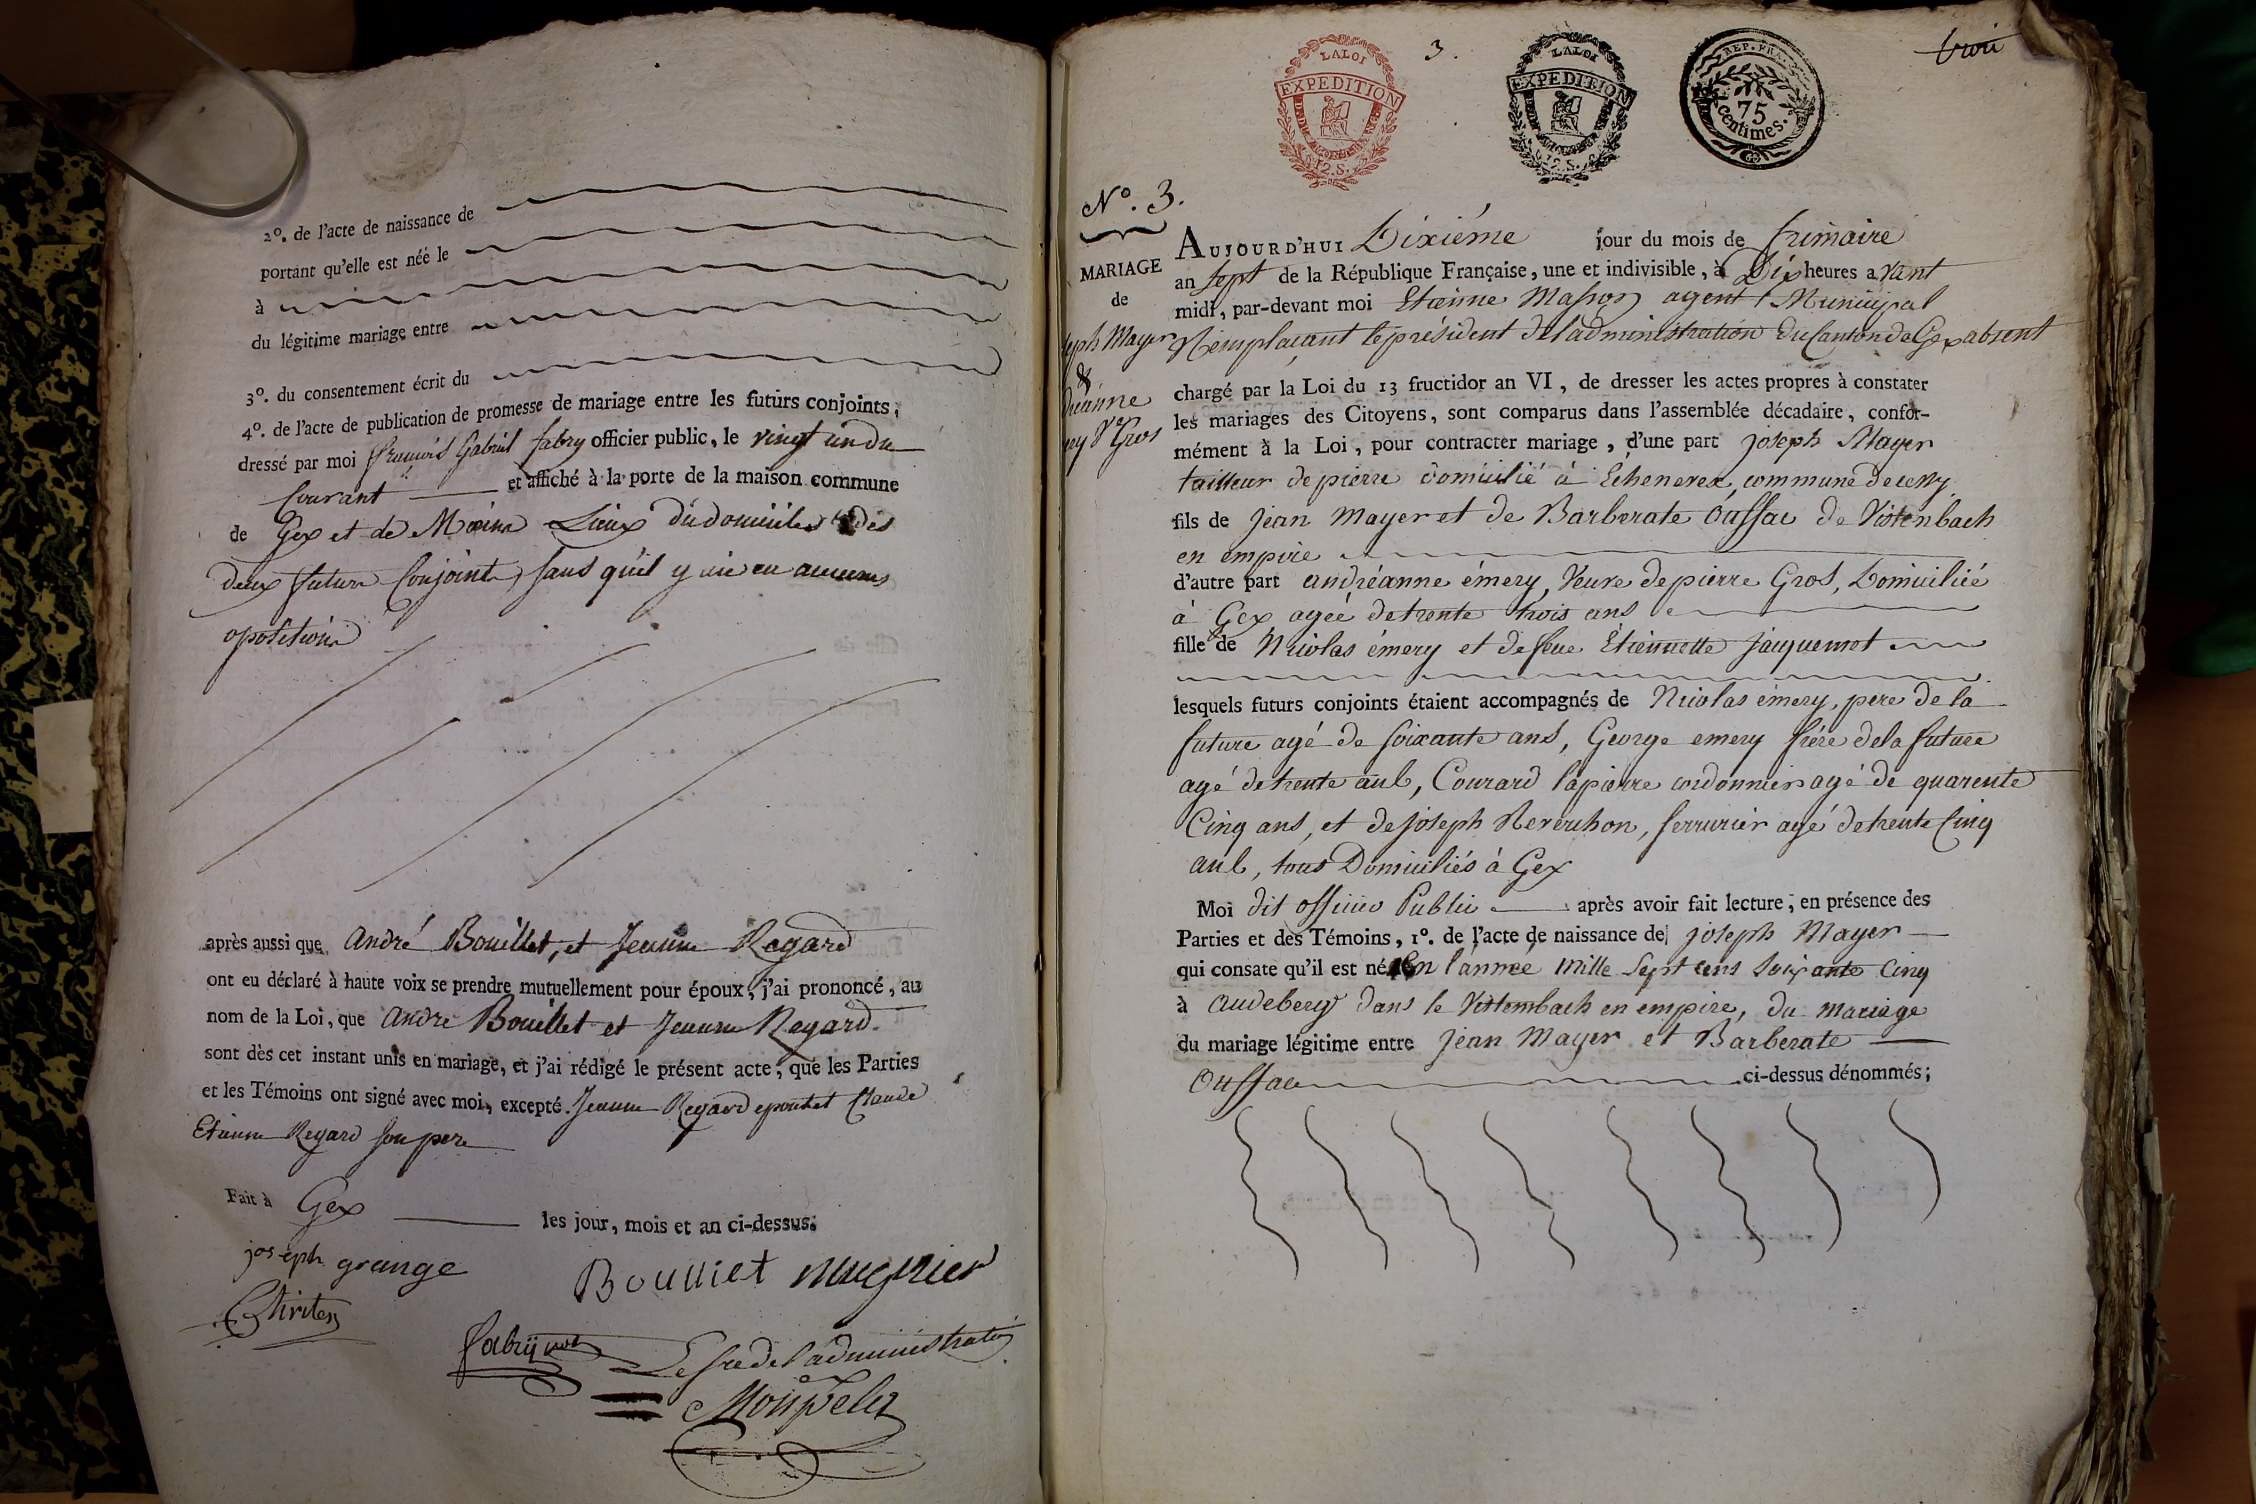 2º. de l'acte de naissance de
portant qu'elle est née le
à
du légitime mariage entre
3º. du consentement écrit du
4º. de l'acte de publication de promesse de mariage entre les futurs conjoints,
dressé par moi françois Gabriel fabry officier public, le vingt un du
Courant et affiché à la porte de la maison commune
de Gex et de Lieux du domicile des
deux futurs Conjoints, sans qu'il y aie eu aucune
oposition
après aussi que André Bouillet, et Jeanne Regard
ont eu déclaré à haute voix se prendre mutuellement pour époux, j'ai prononcé, au
nom de la Loi, que André Bouillet et Jeanne Regard.
sont dès cet instant unis en mariage, et j'ai rédigé le présent acte, que les Parties
et les Témoins ont signé avec moi, excepté Jeanne Regard epouse et Claude
Etienne Regard son pere
Fait à Gex les jour, mois et an ci-dessus.
joseph grange
Bouiliet mugnier
fabry
Le sre de l'administration
3.
LA LOI
EXPEDITION
12.S.
LA LOI
EXPEDITION
12.S.
REP. FRA
75
centimes.
trois
Nº. 3.
MARIAGE
de
eph Mayer
&
dréanne
ery Ve Gros
AUJOURD'HUI Dixiéme jour du mois de frimaire
an Sept de la République Française, une et indivisible, à Dix heures avant
midi, par-devant moi Etienne Masson agent Municipal
Remplaçant le président de l'administration du Canton de Gex absent
chargé par la Loi du 13 fructidor an VI, de dresser les actes propres à constater
les mariages des Citoyens, sont comparus dans l'assemblée décadaire, confor-
mément à la Loi, pour contracter mariage, d'une part joseph Mayer
tailleur de pierre domicilié à Echenevex, commune de cessy
fils de jean Mayer et de Barberate Oussac de Virtenbach
en empire
d'autre part andréanne émery, Veuve de pierre Gros, Domiciliée
à Gex agée de trente trois ans
fille de Nicolas émery et de feue Etiennette jacquemot
lesquels futurs conjoints étaient accompagnés de Nicolas émery, pere de la
future agé de soixante ans, George emery frére de la future
agé de trente ans, Conrard lapierre cordonnier agé de quarente
Cinq ans, et de joseph Reverchon, serrurier agé de trente Cinq
ans, tous Domiciliés à Gex
Moi dit officier Public après avoir fait lecture, en présence des
Parties et des Témoins, 1º. de l'acte de naissance de joseph Mayer
qui consate qu'il est né En l'année mille Sept cens soixante Cinq
à audeberg dans le Virtembach en empire, du mariage
du mariage légitime entre jean Mayer et Barberate
Oussac ci-dessus dénommés;